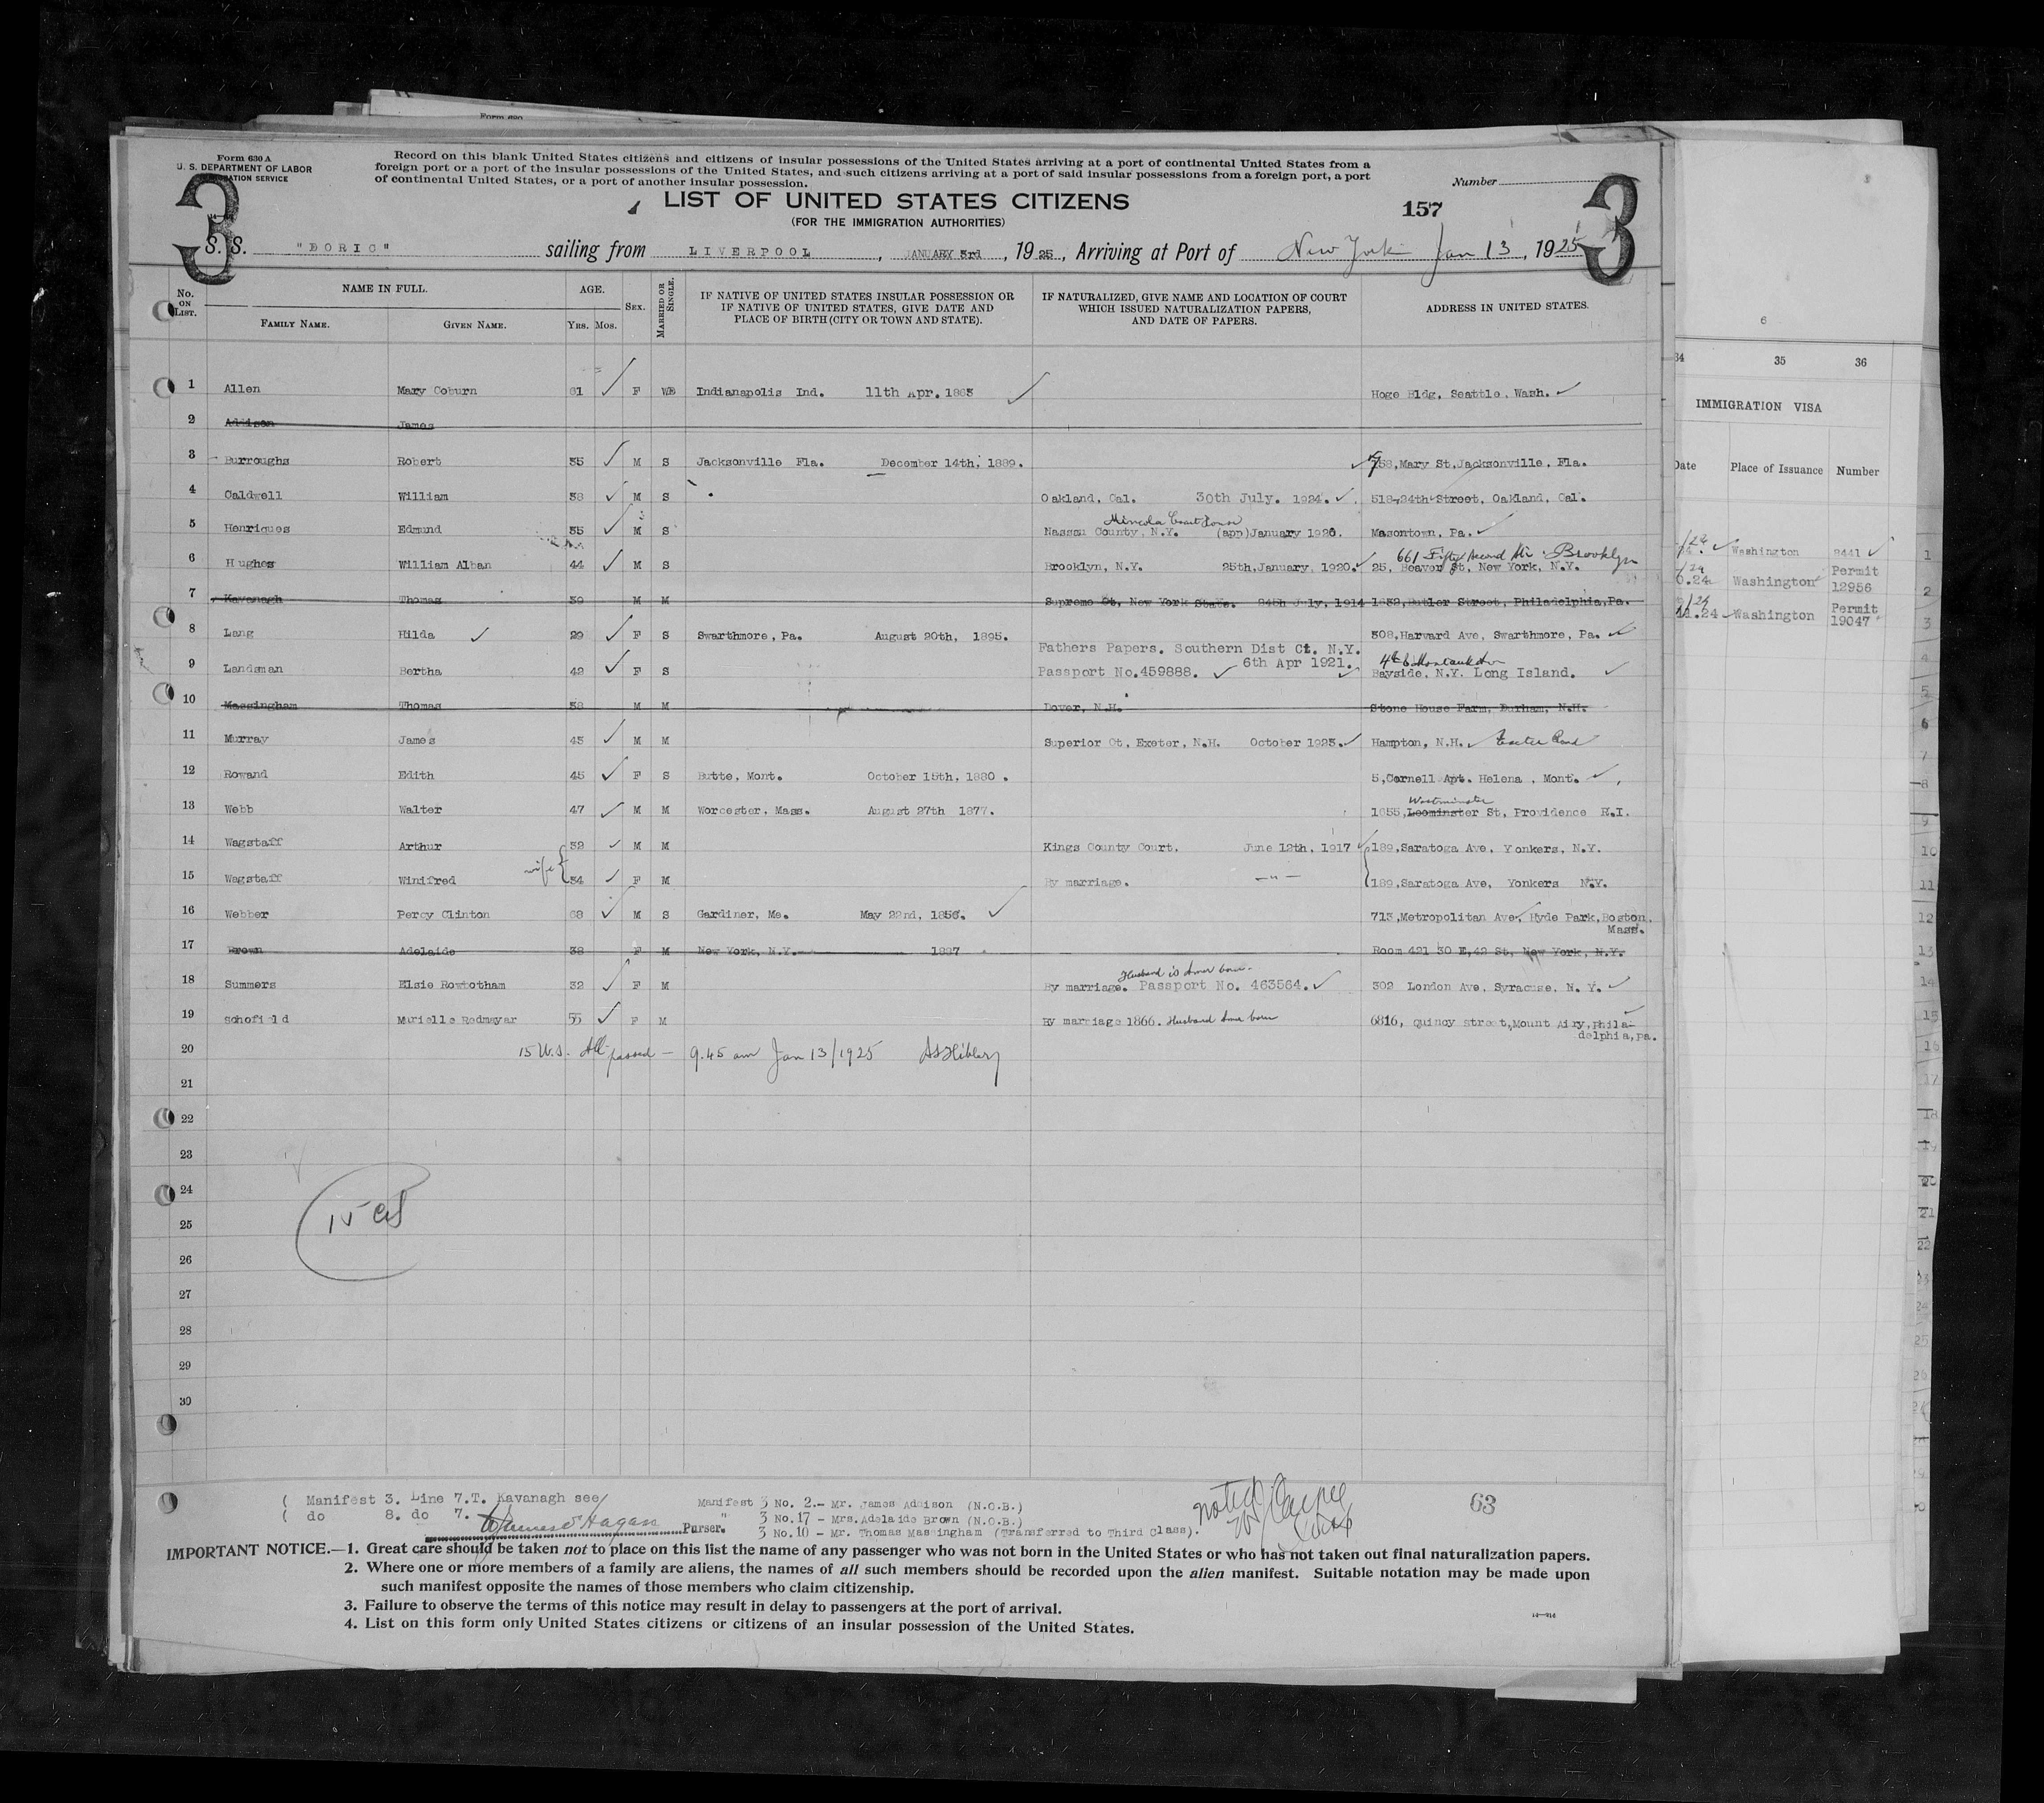 Form 630
Form 630 A
U. S. DEPARTMENT OF LABOR
IMMIGRATION SERVICE
Record on this blank United States citizens and citizens of insular possessions of the United States arriving at a port of continental United States from a
foreign port or a port of the insular possessions of the United States, and such citizens arriving at a port of said insular possessions from a foreign port, a port
of continental United States, or a port of another insular possession.
Number
3
LIST OF UNITED STATES CITIZENS
157
3
(FOR THE IMMIGRATION AUTHORITIES)
S. S. "DORIC" sailing from LIVERPOOL, JANUARY 3rd, 1925, Arriving at Port of New York Jan 13, 1925
No. ON LIST. NAME IN FULL. AGE. SEX. MARRIED OR SINGLE. IF NATIVE OF UNITED STATES INSULAR POSSESSION OR IF NATIVE OF UNITED STATES, GIVE DATE AND PLACE OF BIRTH (CITY OR TOWN AND STATE). IF NATURALIZED, GIVE NAME AND LOCATION OF COURT WHICH ISSUED NATURALIZATION PAPERS, AND DATE OF PAPERS. ADDRESS IN UNITED STATES.
FAMILY NAME. GIVEN NAME. YRS. MOS.
1 Allen Mary Coburn 61 ✓ F WD Indianapolis Ind. 11th Apr. 1863 ✓ Hoge Bldg, Seattle, Wash. ✓
2 Addison James
3 Burroughs Robert 35 ✓ M S Jacksonville Fla. December 14th, 1889. 758, Mary St, Jacksonville, Fla.
4 Caldwell William 38 ✓ M S Oakland, Cal. 30th July. 1924. ✓ 518-24th Street, Oakland, Cal.
Mineola Court House
5 Henriques Edmund 35 ✓ M S Nassau County, N.Y. (app) January 1920. Masontown, Pa. ✓
661 Fifty Second Str. Brooklyn
6 Hughes William Alban 44 ✓ M S Brooklyn, N.Y. 25th, January, 1920. ✓ 25, Beaver St, New York, N.Y.
7 Kavanagh Thomas 39 M M Supreme Ct, New York State. 24th July, 1914 1632, Butler Street, Philadelphia, Pa.
8 Lang Hilda ✓ 29 ✓ F S Swarthmore, Pa. August 20th, 1895. 308, Harvard Ave, Swarthmore, Pa. ✓
Fathers Papers. Southern Dist Ct. N.Y.
6th Apr 1921.
9 Landsman Bertha 42 ✓ F S Passport No. 459888. ✓ Bayside, N.Y. Long Island. ✓
10 Massingham Thomas 38 M M Dover, N.H. Stone House Farm, Durham, N.H.
11 Murray James 45 ✓ M M Superior Ct, Exeter, N.H. October 1923. ✓ Hampton, N.H. ✓ Exeter Road
12 Rowand Edith 45 ✓ F S Butte, Mont. October 15th, 1880. 5, Cornell Apt. Helena, Mont. ✓
Westminster
13 Webb Walter 47 ✓ M M Worcester, Mass. August 27th 1877. 1655, Leominster St, Providence R.I.
14 Wagstaff Arthur 32 ✓ M M Kings County Court, June 12th, 1917 ✓ 189, Saratoga Ave, Yonkers, N.Y.
15 Wagstaff Winifred wife 34 ✓ F M By marriage. — " — 189, Saratoga Ave, Yonkers N.Y.
16 Webber Percy Clinton 68 ✓ M S Gardiner, Me. May 22nd, 1856. ✓ 713, Metropolitan Ave, Hyde Park, Boston,
Mass.
17 Brown Adelaide 38 F M New York, N.Y. 1887 Room 421 30 E, 42 St, New York, N.Y.
Husband is Amer born.
18 Summers Elsie Rowbotham 32 ✓ F M By marriage. Passport No. 463564. ✓ 302 London Ave, Syracuse, N. Y. ✓
19 Schofield Murielle Redmayar 55 ✓ F M By marriage 1866. Husband Amer born 6816, Quincy street, Mount Airy, Phila-
delphia, Pa.
20 15 U.S. All passed — 9.45 am Jan 13/1925
21
22
23
24
15
25
26
27
28
29
30
( Manifest 3. Line 7. T. Kavanagh see
( do 8. do 7.
Purser.
Manifest 3 No. 2.- Mr. James Addison (N.O.B.)
" 3 No. 17 - Mrs. Adelaide Brown (N.O.B.)
3 No. 10 - Mr. Thomas Massingham (Transferred to Third Class).
noted
63
IMPORTANT NOTICE.—1. Great care should be taken not to place on this list the name of any passenger who was not born in the United States or who has not taken out final naturalization papers.
2. Where one or more members of a family are aliens, the names of all such members should be recorded upon the alien manifest. Suitable notation may be made upon
such manifest opposite the names of those members who claim citizenship.
3. Failure to observe the terms of this notice may result in delay to passengers at the port of arrival.
4. List on this form only United States citizens or citizens of an insular possession of the United States.
14—914
6
34 35 36
IMMIGRATION VISA
Date Place of Issuance Number
Washington 8441 ✓ 1
Washington Permit 12956 2
Washington Permit 19047 3
4
5
6
7
8
9
10
11
12
13
14
15
16
17
18
19
20
21
22
23
24
25
26